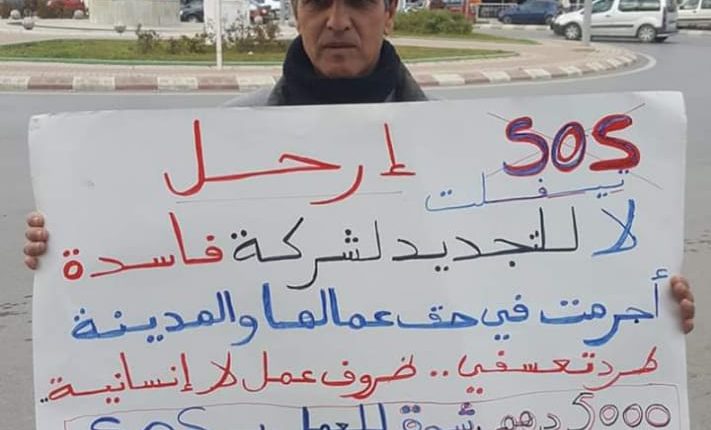 SOS إرحل
تيفلت
لا للتجديد لشركة فاسدة
أجرمت في حق عمالها والمدينة
طرد تعسفي .. ظروف عمل لا إنسانية
5000 درهم للعمل SOS